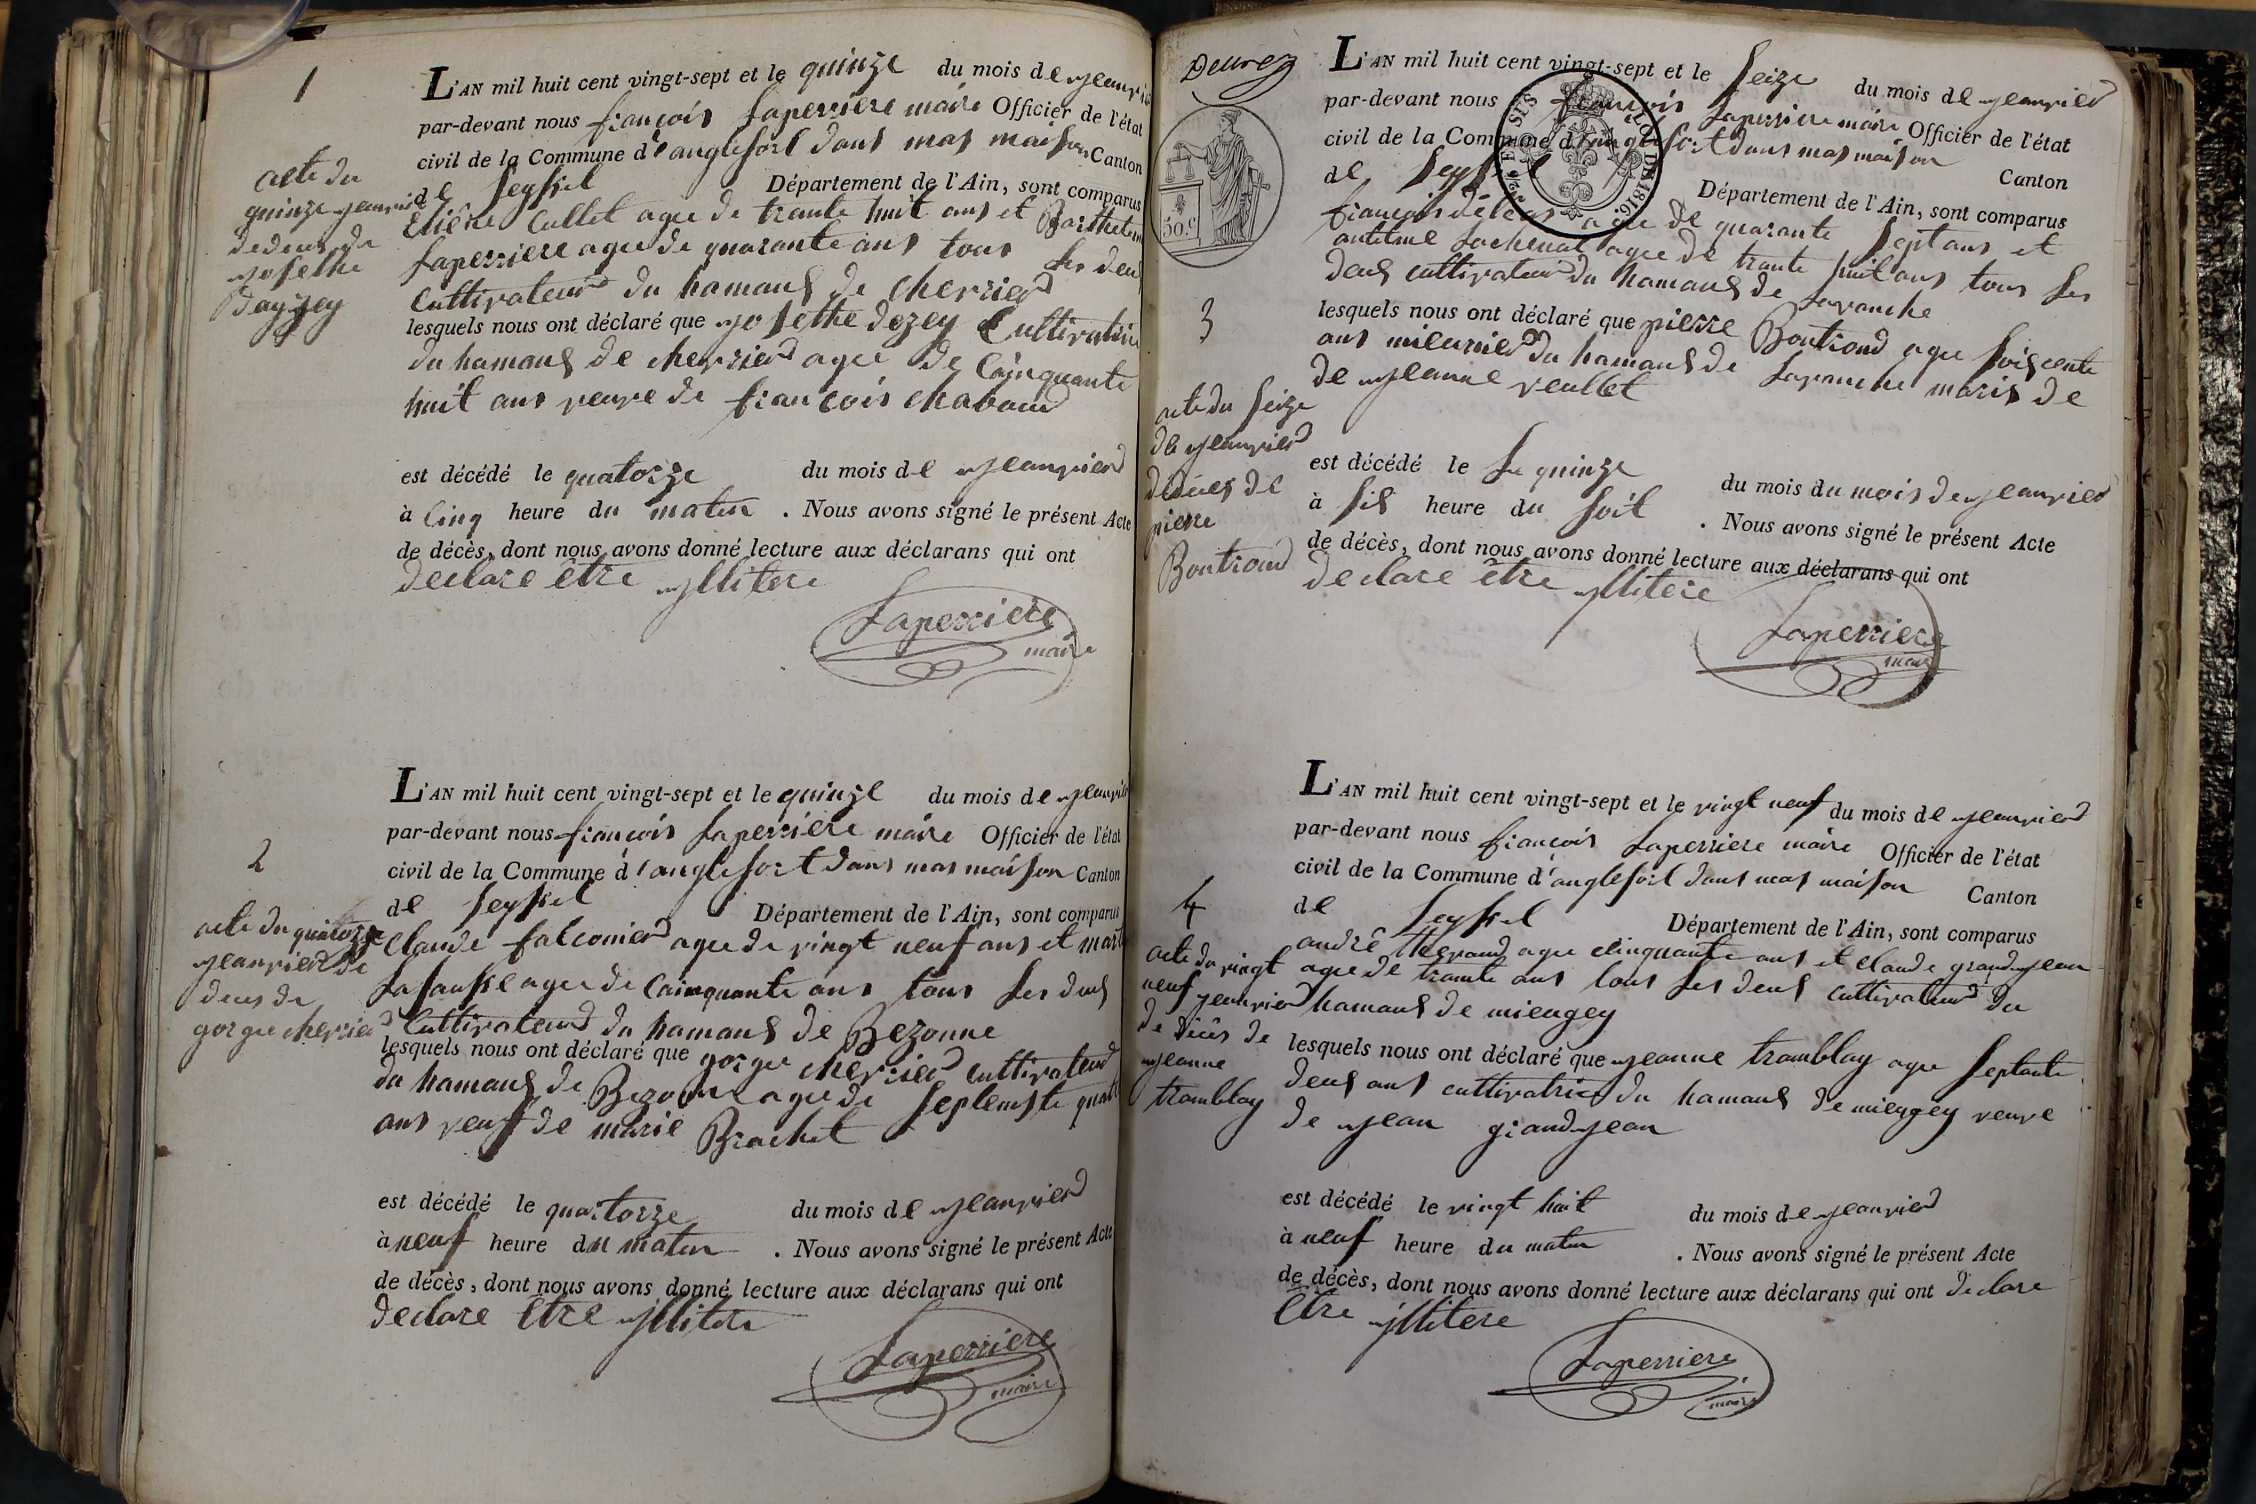 1
L'AN mil huit cent vingt-sept et le quinze du mois de jeanvier
par-devant nous françois Laperriere maire Officier de l'état
civil de la Commune d'anglefort dans mas maison Canton
de Seyssel Département de l'Ain, sont comparus
Etiéne Cullet agee de trante huit ans et
Laperriere agee de quarante ans tous les deus
Cultivateurs du hamans de cherrier
lesquels nous ont déclaré que josethe dezey Cultivatrice
du hamans de cherrier agee de Cainquante
huit ans veuve de françois chaboud
est décédé le quatorze du mois de jeanvier
à cinq heure du matin . Nous avons signé le présent Acte
de décès, dont nous avons donné lecture aux déclarans qui ont
declare être yllitere
Laperriere
maire
acte du
quinze jeanvier
de deces de
josethe
2
L'AN mil huit cent vingt-sept et le quinze du mois de jeanvier
par-devant nous françois Laperriere maire Officier de l'état
civil de la Commune d'anglefort dans mas maison Canton
de Seyssel Département de l'Ain, sont comparus
Claude falconier agee de vingt neuf ans et
Lasausse agee de Cainquante ans tous les deus
Cultivateurs du hamans de Bezonne
lesquels nous ont déclaré que gorge cherrier cultivateur
du hamans de Bezonne agee de
ans veuf de marie Brachet
est décédé le quatorze du mois de jeanvier
à neuf heure du matin . Nous avons signé le présent Acte
de décès, dont nous avons donné lecture aux déclarans qui ont
declare être yllitere
Laperriere
maire
acte du quatorze
jeanvier de
deces de
gorge cherrier
L'AN mil huit cent vingt-sept et le seize du mois de jeanvier
par-devant nous françois Laperriere maire Officier de l'état
civil de la Commune d'anglefort dans mas maison Canton
de Seyssel Département de l'Ain, sont comparus
françois agee de quarante sept ans et
antelme Lachenal agee de trante huit ans tous les
deus cultivateurs du hamans de Lavanche
lesquels nous ont déclaré que pierre Boutrond agee soiscente
ans meunier du hamans de Lavanche maris de
de jeanne veullet
est décédé le Le quinze du mois du mois de jeanvier
à sis heure du soit . Nous avons signé le présent Acte
de décès, dont nous avons donné lecture aux déclarans qui ont
declare être yllitere
Laperriere
maire
50.c
LOI DE 1816.
3
acte du seize
de jeanvier
de déces de
pierre
Boutrond
L'AN mil huit cent vingt-sept et le vingt neuf du mois de jeanvier
par-devant nous françois Laperriere maire Officier de l'état
civil de la Commune d'anglefort dans mas maison Canton
de Seyssel Département de l'Ain, sont comparus
andré agee cinquante ans et Claude grand jean
agee de trante ans tous les deus cultivateurs du
hamans de miengey
lesquels nous ont déclaré que jeanne tramblay agee septante
deus ans cultivatrice du hamans de miengey veuve
de jean grand jean
est décédé le vingt huit du mois de jeanvier
à neuf heure du matin . Nous avons signé le présent Acte
de décès, dont nous avons donné lecture aux déclarans qui ont declare
être yllitere
Laperriere
maire
4
acte du vingt
neuf jeanvier
de décès de
jeanne
tramblay